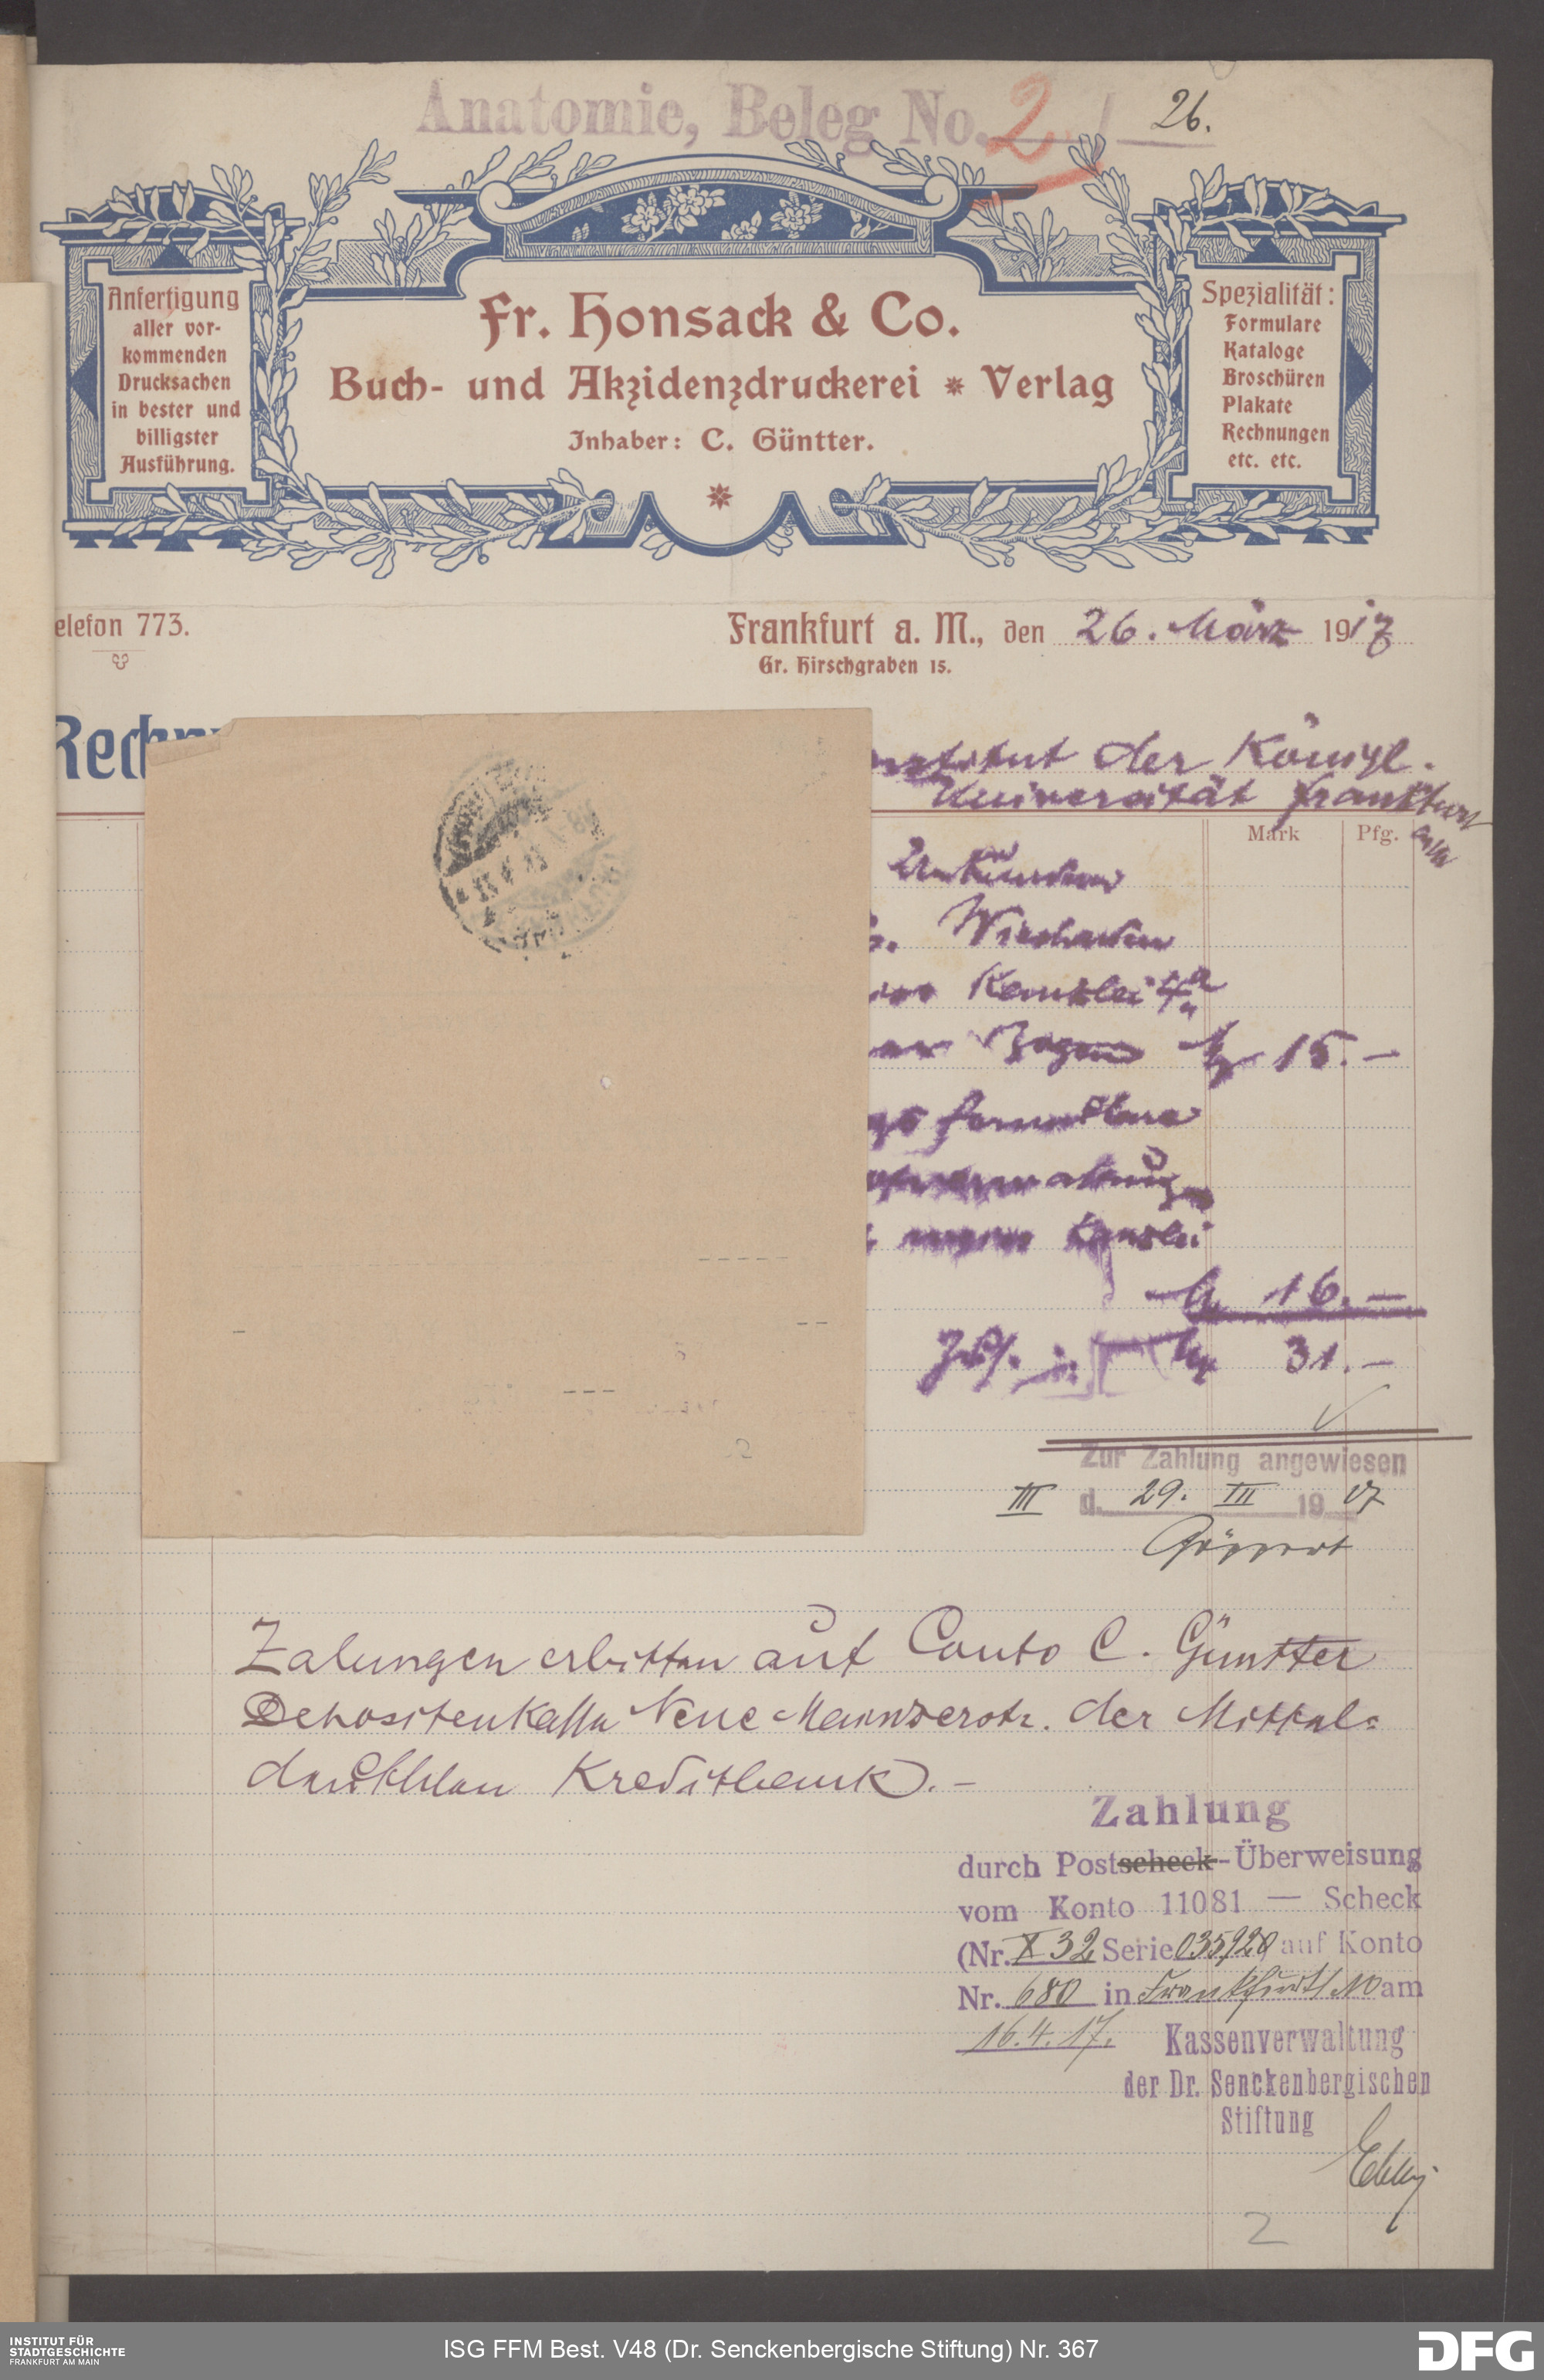 Anatomie, Beleg No. 2 26.
Anfertigung
aller vor-
kommenden
Drucksachen
in bester und
billigster
Ausführung.
Fr. Honsack & Co.
Buch- und Akzidenzdruckerei * Verlag
Inhaber: C. Güntter.
Spezialität:
Formulare
Kataloge
Broschüren
Plakate
Rechnungen
etc. etc.
elefon 773.
Frankfurt a. M., den 26. März 1917
Gr. Hirschgraben 15.
Rechn
der Königl.
Universität Frankfurt
Mark Pfg.
Urkunden
Wiesbaden
Kanzlei
Bogen M 15.–
Kanzlei
M 16.–
M 31.–
Zur Zahlung angewiesen
III d. 29. III 1917
Göppert
Zalungen erbitten auf Conto C. Güntter
Depositenkasse Neue Mainzerstr. der Mittel-
deutschen Kreditbank.–
Zahlung
durch Postscheck-Überweisung
vom Konto 11081 — Scheck
(Nr. X 32 Serie 035920 auf Konto
Nr. 680 in Frankfurt/M am
16.4.17.
Kassenverwaltung
der Dr. Senckenbergischen
Stiftung
2
INSTITUT FÜR
STADTGESCHICHTE
FRANKFURT AM MAIN
ISG FFM Best. V48 (Dr. Senckenbergische Stiftung) Nr. 367
DFG